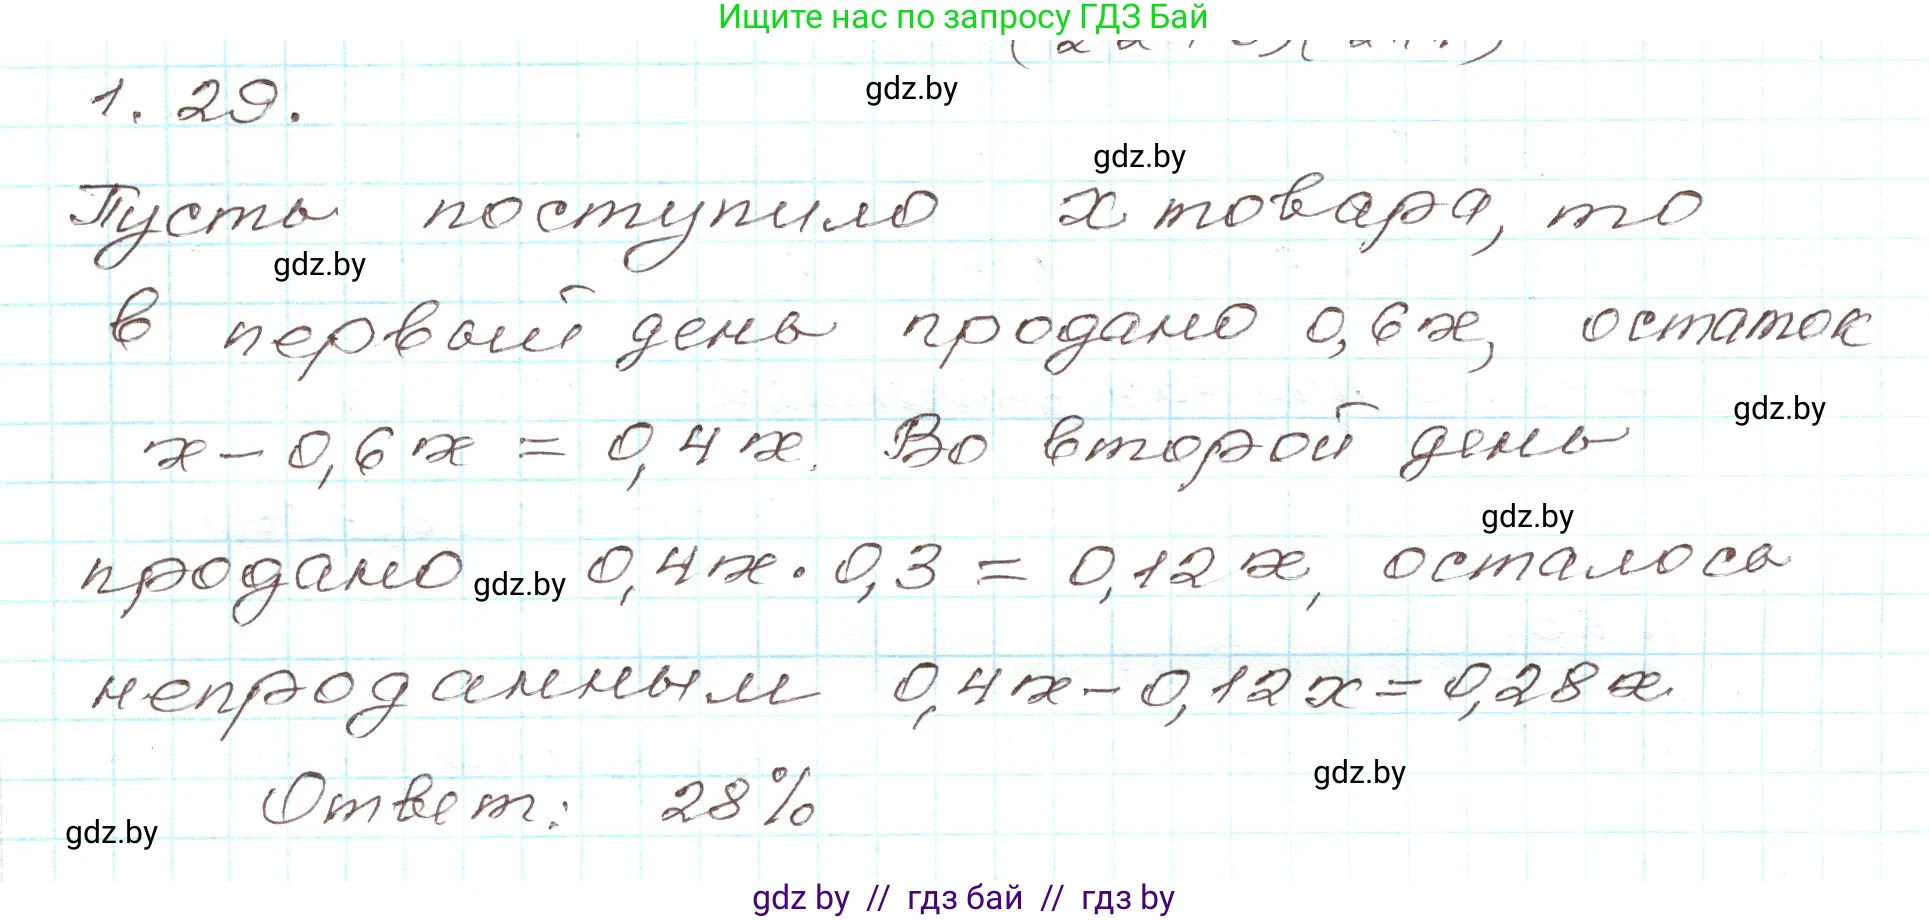 Ищите нас по запросу ГДЗ Бай
gdz.by
1.29.
gdz.by
Пусть поступило x товара, то
gdz.by
в первый день продано 0,6x, остаток
gdz.by
x - 0,6x = 0,4x. Во второй день
gdz.by
продано gdz.by 0,4x · 0,3 = 0,12x, осталось
непроданным 0,4x - 0,12x = 0,28x
gdz.by
Ответ: 28%
gdz.by
gdz by // гдз бай // гдз by